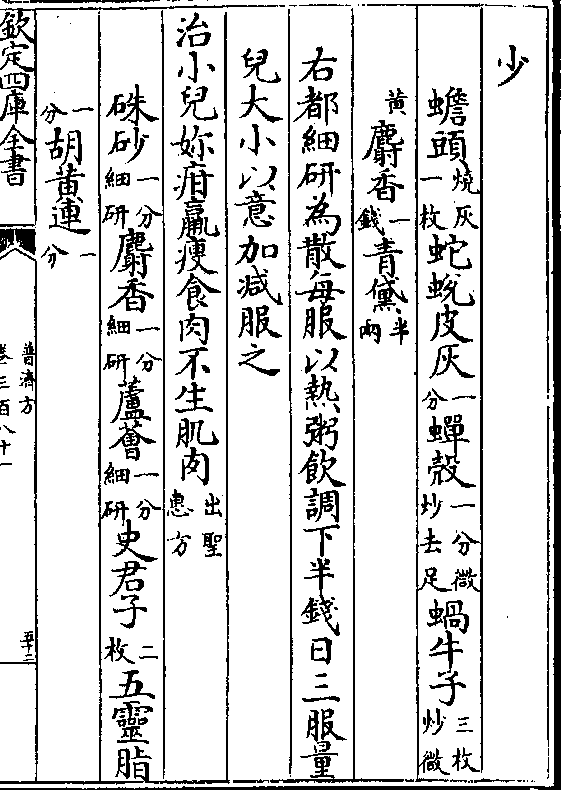 少
蟾頭燒灰一枚蛇蛻皮灰一分蟬殻一分微炒去足蝸牛子三枚炒微
黄麝香一錢青黛半兩
右都細研為散每服以熱粥飲調下半錢日三服量
兒大小以意加減服之
治小兒妳疳羸瘦食肉不生肌肉出聖惠方
硃砂一分細研麝香一分細研蘆薈一分細研史君子二枚五靈脂
一分胡黄連一分
欽定四庫全書
普濟方
卷三百八十一